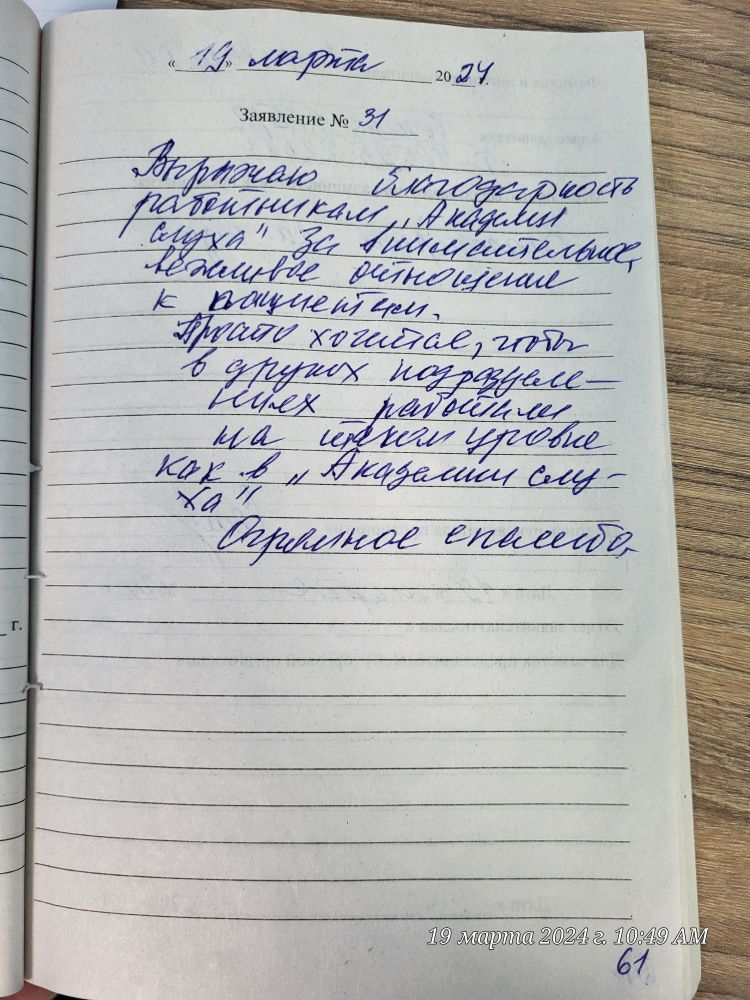 « 19 » марта 2024 г.
Заявление № 31
Выражаю благодарность
работникам „Академии
слуха" за внимательное,
вежливое отношение
к пациентам.
Просто хочется, чтобы
в других подразделе-
ниях работали
на таком уровне
как в „Академии слу-
ха"
Огромное спасибо.
г.
19 марта 2024 г. 10:49 AM
61